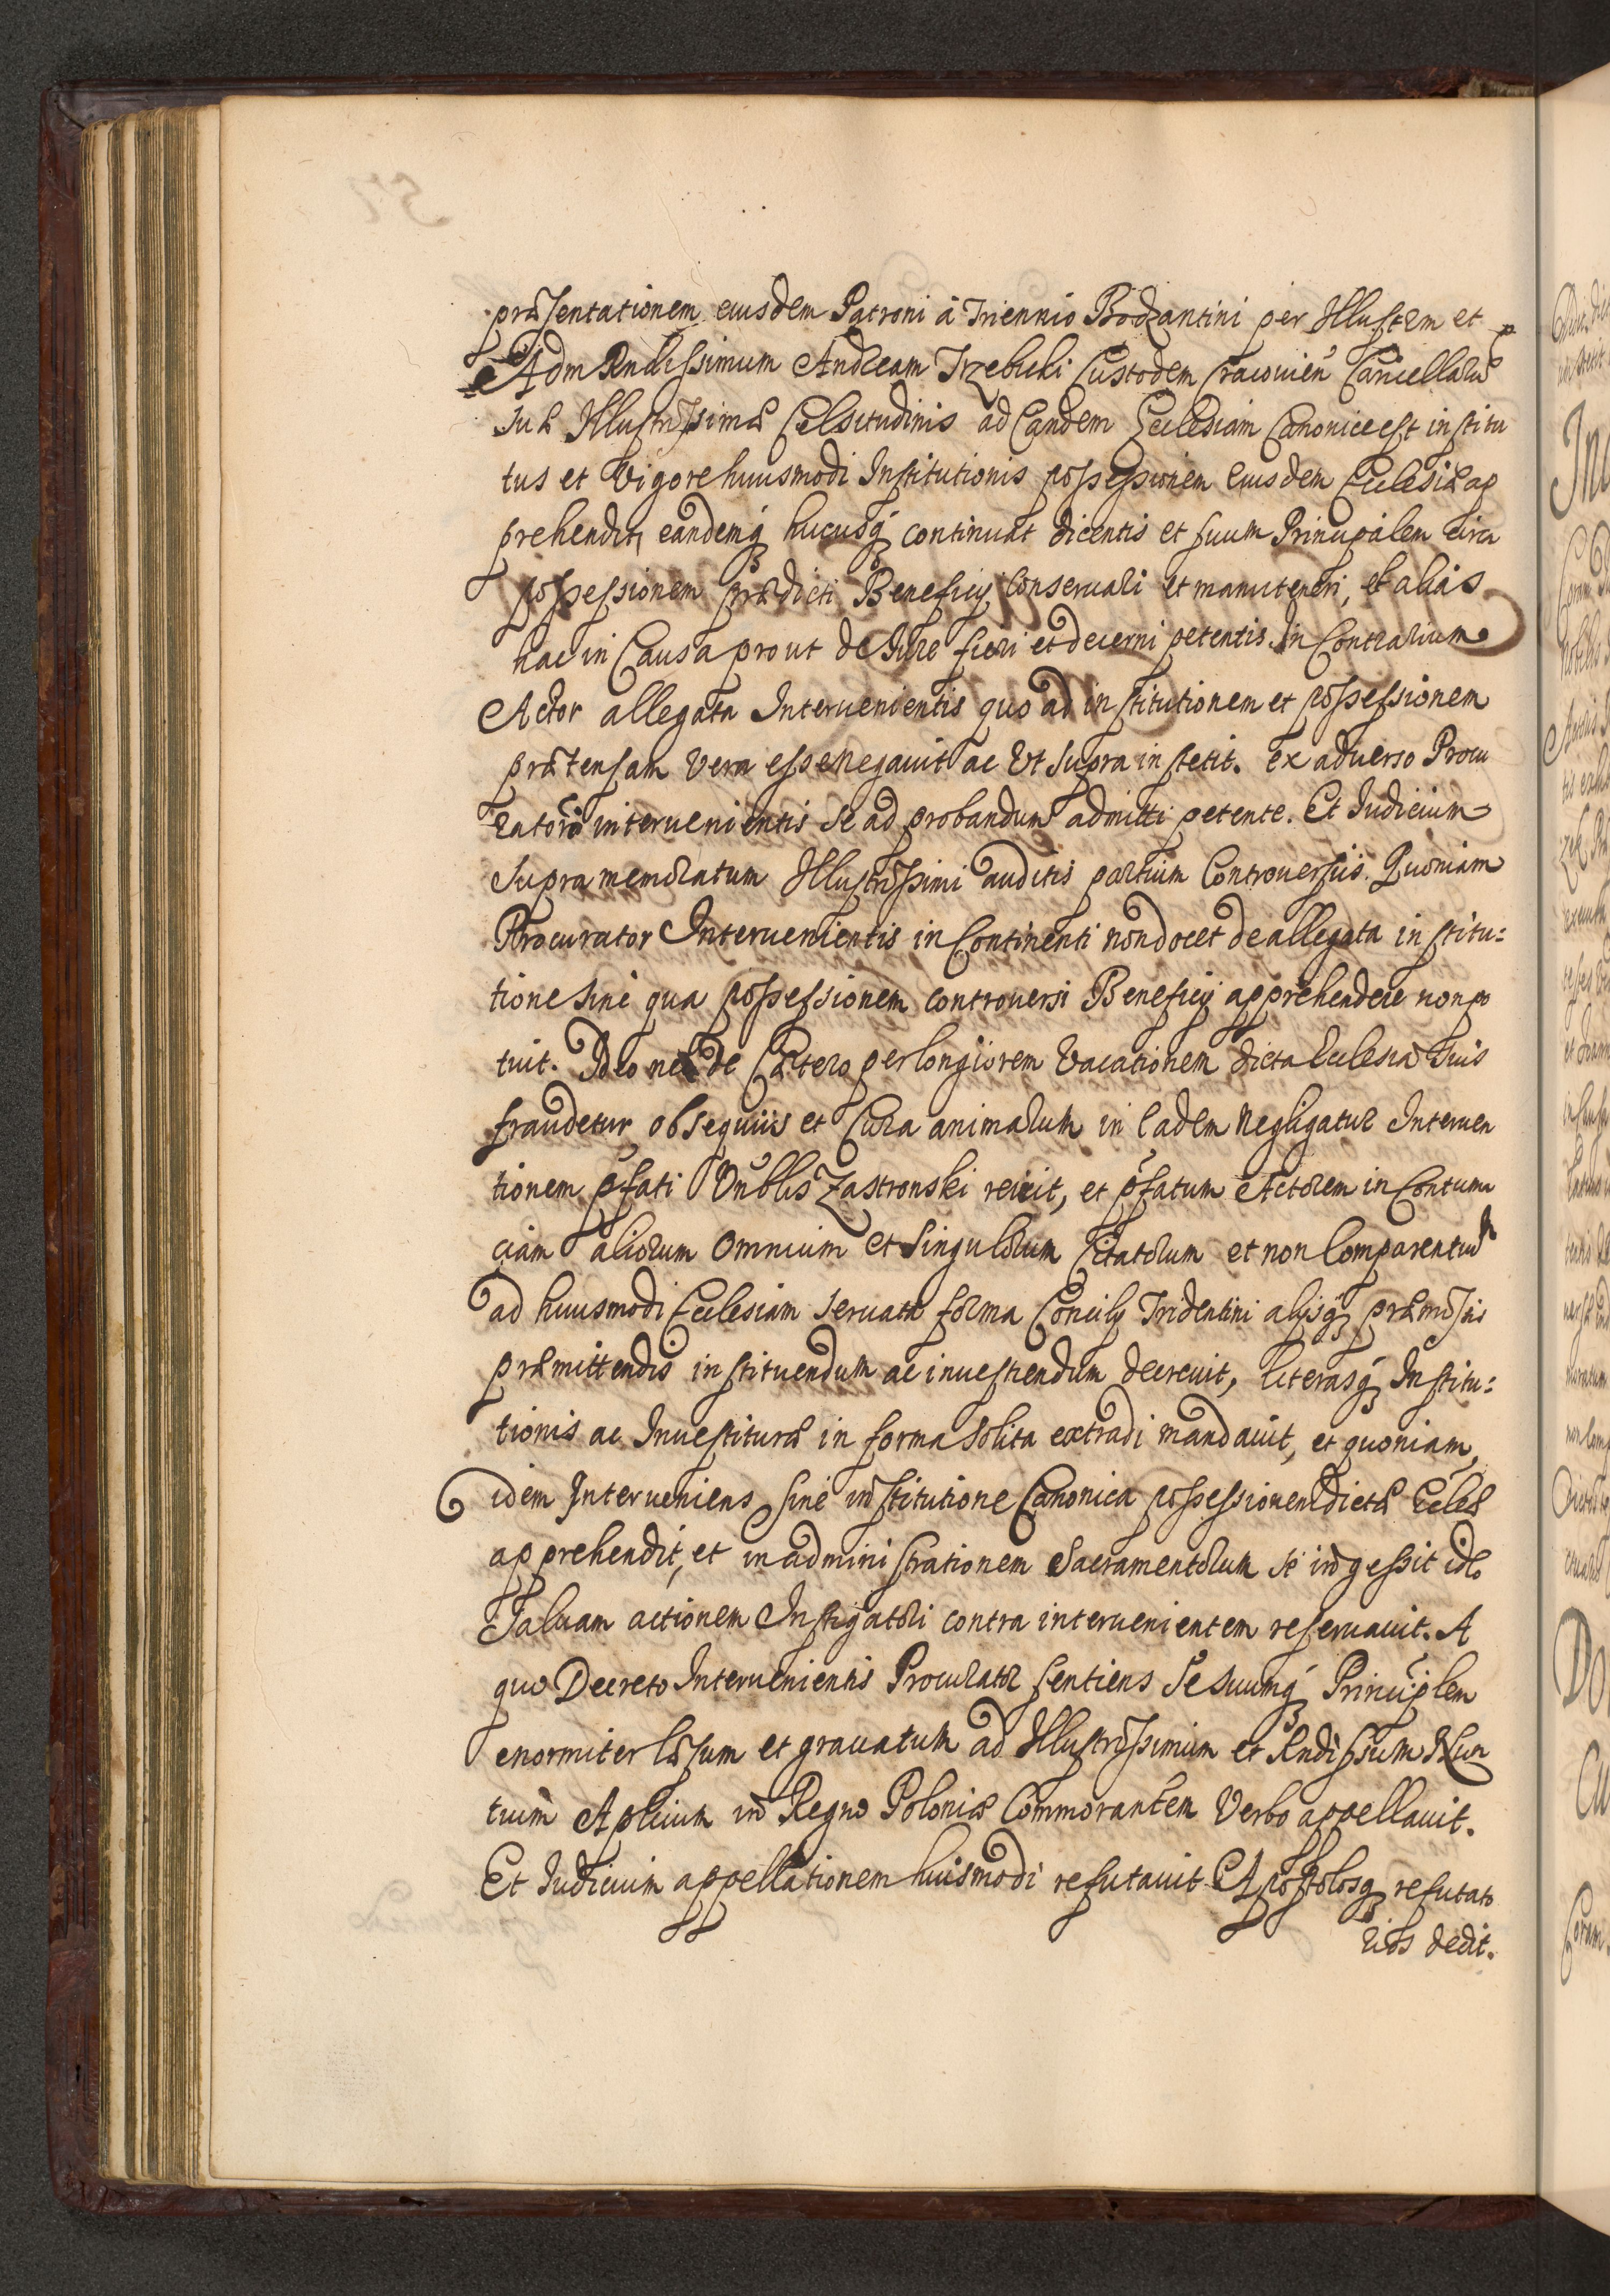 præsentationem eiusdem Patroni à Triennio Bodzantini per Illustrem et
Adm Rndissimum Andream Trzebicki Custodem Cracouien̄ Cancellariū
Suæ Illustrissimæ Celsitudinis ad Eandem Ecclesiam Canonice est institu
tus et Vigore huiusmodi Institutionis possessionem Eiusdem Ecclesiæ ap
prehendit, eandemq hucusq continuat dicentis et suum Principalem circa
possessionem prædicti Beneficij Conseruari et manuteneri, et alias
hac in Causa prout de Iure fieri et decerni petentis. In Contrarium
Actor allegata Interuenientis quo ad institutionem et possessionem
prætensam Vera esse negauit ac Vt supra institit. Ex aduerso Procu
ratore interuenientis se ad probandum admitti petente. Et Iudicium
Supra memoratum Illustrissimi auditis partium Controuersiis. Quoniam
Procurator Interuenientis in Continenti non docet de allegata institu:
tione sine qua possessionem controuersi Beneficij apprehendere non po
tuit. Ideo ne de Cætero per longiorem Vacationem dicta Ecclesia suis
fraudetur obsequiis et Cura animarum in Eadem negligatur Interuen
tionem pfati Vnblis Zastronski reiecit, et pfatum Actorem in Contuma
ciam aliorum omnium et Singulorum Citatorum et non Comparentium
ad huiusmodi Ecclesiam seruata forma Concilij Tridentini alijsq præmissis
præmittendis instituendum ac inuestiendum decreuit, literasq Institu:
tionis ac Inuestituræ in forma solita extradi mandauit, et quoniam
idem Interueniens sine institutione Canonica possessionem dictæ Eccles
apprehendit, et in administrationem Sacramentorum se ingessit ideo
Saluam actionem Instigatori contra interuenientem reseruauit. A
quo Decreto Interuenientis Procurator sentiens se suumq Principlem
enormiter læsum et grauatum ad Illustrissimum et Rndissium Nun
tium Aplicum in Regno Poloniæ Commorantem Verbo appellauit.
Et Iudicium appellationem huiusmodi refutauit Apostolosq refutato
rios dedit.